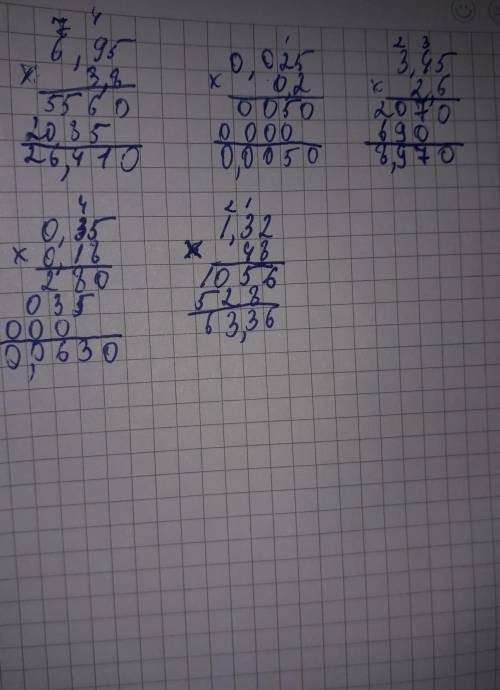 7 4
6,95
x 3,8
5560
2085
26,410
1
0,025
x 0,2
0050
0000
0,0050
2 3
3,45
x 2,6
2070
690
8,970
4
0,35
x 0,18
280
035
000
0,0630
2 1
1,32
x 48
1056
528
63,36